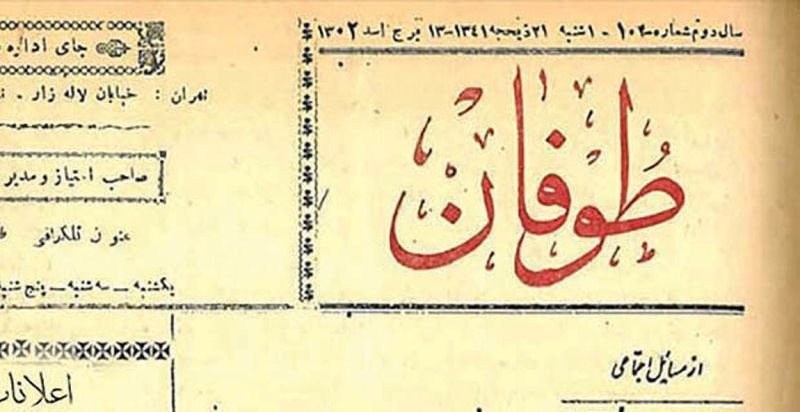 سال دوم شماره ۱۰۲ - ۱شنبه ۲۱ ذیحجه ۱۳۴۱ - ۱۳ برج اسد ۱۳۰۲
طوفان
از مسائل اجتماعی
جای اداره
تهران : خیابان لاله زار .
صاحب امتیاز و مدیر
عنوان تلگرافی
یکشنبه - سه شنبه - پنج شنبه
اعلانات